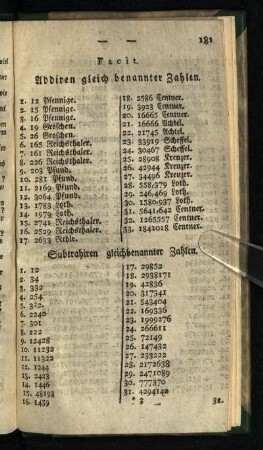 — — 181
Facit.
Addiren gleich benannter Zahlen.
1. 12 Pfennige.
2. 15 Pfennige.
3. 16 Pfennige.
4. 19 Groschen.
5. 26 Groschen.
6. 165 Reichsthaler.
7. 161 Reichsthaler.
8. 226 Reichsthaler.
9. 203 Pfund.
10. 281 Pfund.
11. 2169 Pfund.
12. 3064 Pfund.
13. 1783 Loth.
14. 1979 Loth.
15. 2741 Reichsthaler.
16. 2529 Reichsthaler.
17. 2633 Rthlr.
18. 2586 Centner.
19. 3923 Centner.
20. 16665 Centner.
21. 16666 Achtel.
22. 21745 Achtel.
23. 33919 Scheffel.
24. 30467 Scheffel.
25. 28908 Kreuzer.
26. 42944 Kreuzer.
27. 34496 Kreuzer.
28. 558,379 Loth.
29. 246,469 Loth.
30. 1580,937 Loth.
31. 5641,642 Centner.
32. 1265557 Centner.
33. 1841018 Centner.
Subtrahiren gleichbenannter Zahlen.
1. 12
2. 34
3. 332
4. 254
5. 322
6. 2240
7. 301
8. 122
9. 12428
10. 11232
11. 11322
12. 1244
13. 1423
14. 1446
15. 48198
16. 1439
17. 29852
18. 2938171
19. 42836
20. 317341
21. 543404
22. 169336
23. 1999276
24. 266611
25. 72149
26. 147432
27. 233222
28. 2172638
29. 2471089
30. 777870
31. 4294140
* 3 32.